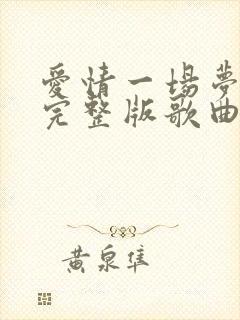 愛情一場夢
完整版歌曲
黄泉隼